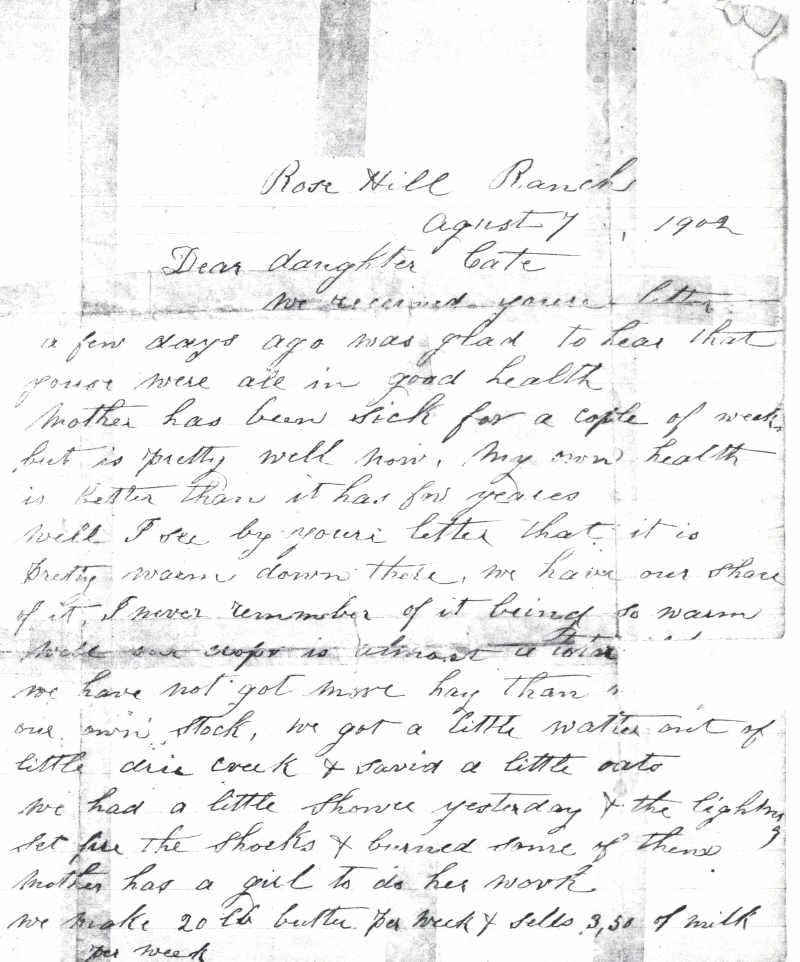 Rose Hill Ranch
Agust 7, 1902
Dear daughter Cate
We received youre letter
a few days ago was glad to hear that
youse were all in good health
Mother has been sick for a cople of weeks
but is pretty well now. My own health
is better than it has for yeares
well I see by youre letter that it is
pretty warm down there, we have our share
of it, I never remmber of it being so warm
Well our crops is almost a total
we have not got more hay than
our own stock, we got a little watter out of
little drie creek & savid a little oats
we had a little shower yesterday & the lightning
set fire the shocks & burned some of them
Mother has a girl to do her work
we make 20 lb butter per week & sells 3,50 of milk
per week